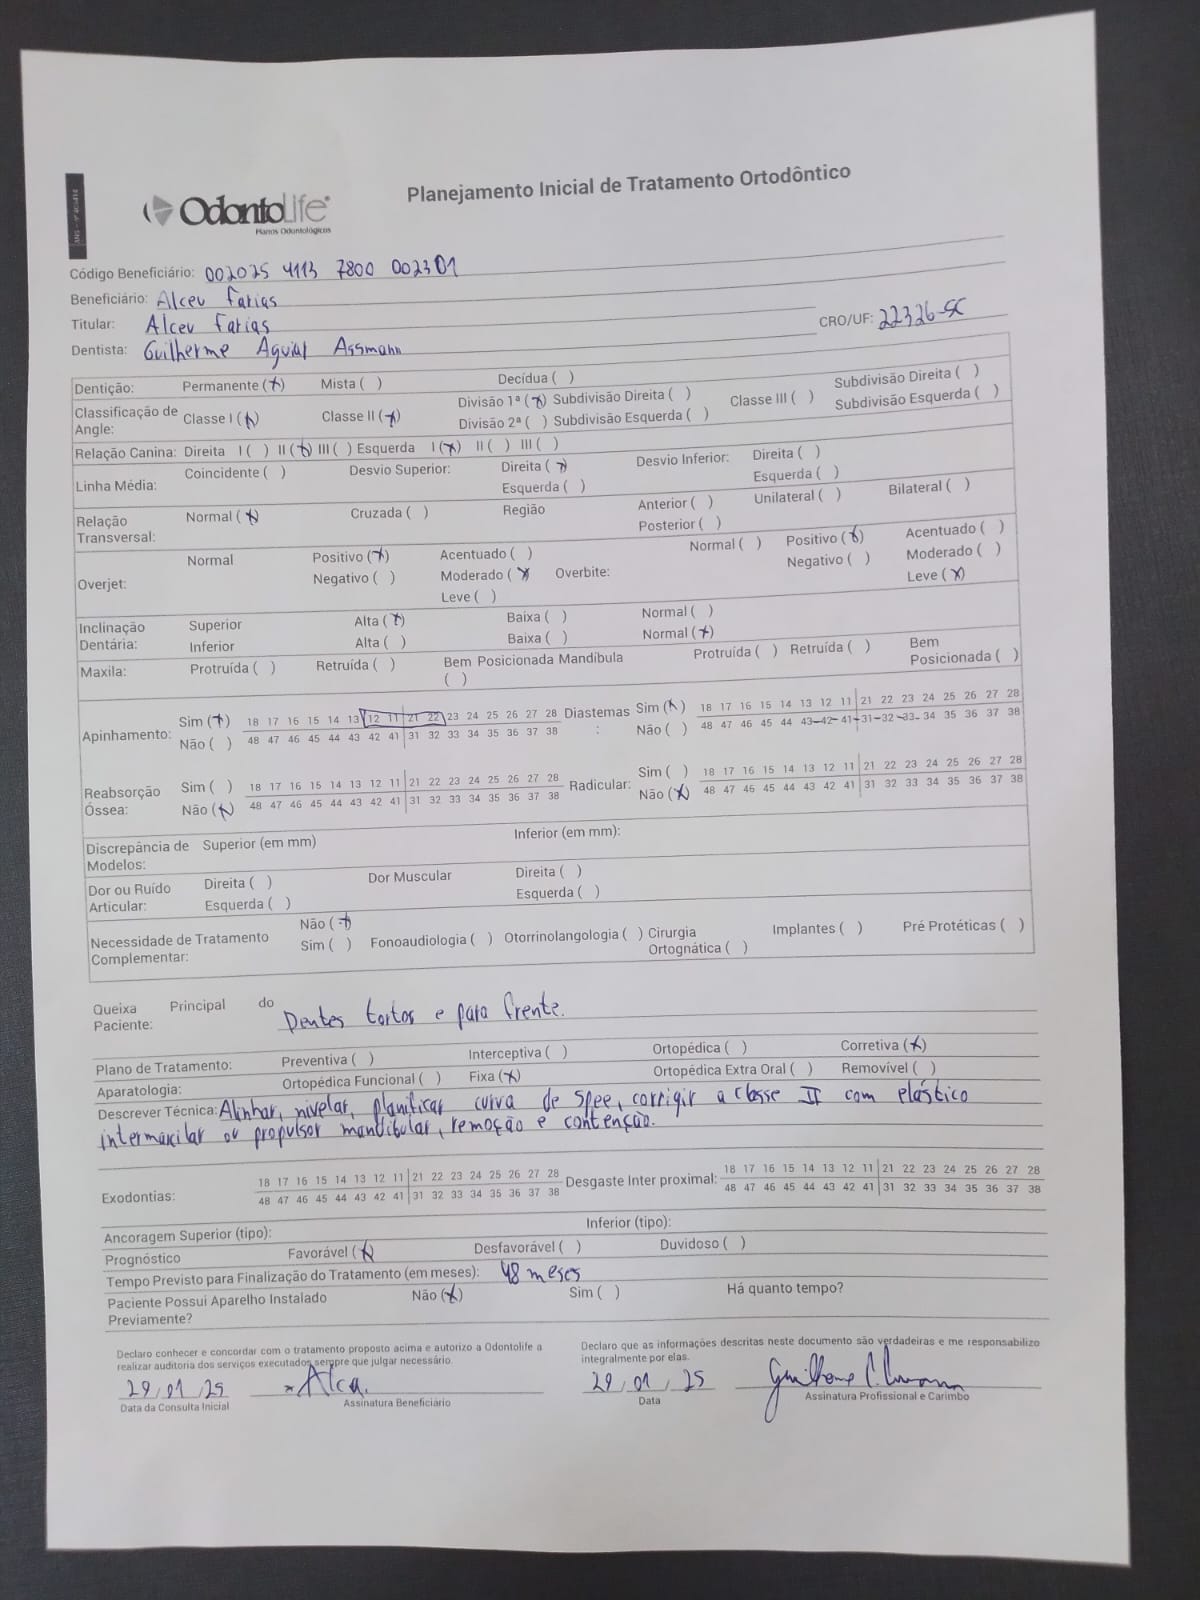 Planejamento Inicial de Tratamento Ortodôntico
OdontoLife
Planos Odontológicos
Código Beneficiário: 002025 4113 7800 002301
Beneficiário: Alceu Farias
Titular: Alceu Farias
Dentista: Guilherme Aguiar Assmann CRO/UF: 22326-SC
Dentição: Permanente (x) Mista ( ) Decídua ( )
Classificação de Angle: Classe I (x) Classe II (x) Divisão 1ª (x) Subdivisão Direita ( ) Classe III ( ) Subdivisão Direita ( )
Divisão 2ª ( ) Subdivisão Esquerda ( ) Subdivisão Esquerda ( )
Relação Canina: Direita I ( ) II (x) III ( ) Esquerda I (x) II ( ) III ( )
Linha Média: Coincidente ( ) Desvio Superior: Direita (x) Desvio Inferior: Direita ( )
Esquerda ( ) Esquerda ( )
Relação Transversal: Normal (x) Cruzada ( ) Região Anterior ( ) Unilateral ( ) Bilateral ( )
Posterior ( )
Overjet: Normal Positivo (x) Acentuado ( ) Overbite: Normal ( ) Positivo (x) Acentuado ( )
Negativo ( ) Moderado (x) Negativo ( ) Moderado ( )
Leve ( ) Leve (x)
Inclinação Dentária: Superior Alta (x) Baixa ( ) Normal ( )
Inferior Alta ( ) Baixa ( ) Normal (x)
Maxila: Protruída ( ) Retruída ( ) Bem Posicionada ( ) Mandíbula Protruída ( ) Retruída ( ) Bem Posicionada ( )
Apinhamento: Sim (x) 18 17 16 15 14 13 12 11 21 22 23 24 25 26 27 28 Diastemas: Sim (x) 18 17 16 15 14 13 12 11 21 22 23 24 25 26 27 28
Não ( ) 48 47 46 45 44 43 42 41 31 32 33 34 35 36 37 38 Não ( ) 48 47 46 45 44 43-42-41-31-32-33-34 35 36 37 38
Reabsorção Óssea: Sim ( ) 18 17 16 15 14 13 12 11 21 22 23 24 25 26 27 28 Radicular: Sim ( ) 18 17 16 15 14 13 12 11 21 22 23 24 25 26 27 28
Não (x) 48 47 46 45 44 43 42 41 31 32 33 34 35 36 37 38 Não (x) 48 47 46 45 44 43 42 41 31 32 33 34 35 36 37 38
Discrepância de Modelos: Superior (em mm) Inferior (em mm):
Dor ou Ruído Articular: Direita ( ) Dor Muscular Direita ( )
Esquerda ( ) Esquerda ( )
Necessidade de Tratamento Complementar: Não (x)
Sim ( ) Fonoaudiologia ( ) Otorrinolangologia ( ) Cirurgia Ortognática ( ) Implantes ( ) Pré Protéticas ( )
Queixa Principal do Paciente: Dentes tortos e para frente.
Plano de Tratamento: Preventiva ( ) Interceptiva ( ) Ortopédica ( ) Corretiva (x)
Aparatologia: Ortopédica Funcional ( ) Fixa (x) Ortopédica Extra Oral ( ) Removível ( )
Descrever Técnica: Alinhar, nivelar, planificar curva de spee, corrigir a classe II com elástico
intermaxilar ou propulsor mandibular, remoção e contenção.
Exodontias: 18 17 16 15 14 13 12 11 21 22 23 24 25 26 27 28 Desgaste Inter proximal: 18 17 16 15 14 13 12 11 21 22 23 24 25 26 27 28
48 47 46 45 44 43 42 41 31 32 33 34 35 36 37 38 48 47 46 45 44 43 42 41 31 32 33 34 35 36 37 38
Ancoragem Superior (tipo): Inferior (tipo):
Prognóstico Favorável (x) Desfavorável ( ) Duvidoso ( )
Tempo Previsto para Finalização do Tratamento (em meses): 48 meses
Paciente Possui Aparelho Instalado Previamente? Não (x) Sim ( ) Há quanto tempo?
Declaro conhecer e concordar com o tratamento proposto acima e autorizo a Odontolife a
realizar auditoria dos serviços executados sempre que julgar necessário.
Declaro que as informações descritas neste documento são verdadeiras e me responsabilizo
integralmente por elas.
29/01/25 Alceu
Data da Consulta Inicial Assinatura Beneficiário
29/01/25
Data Assinatura Profissional e Carimbo